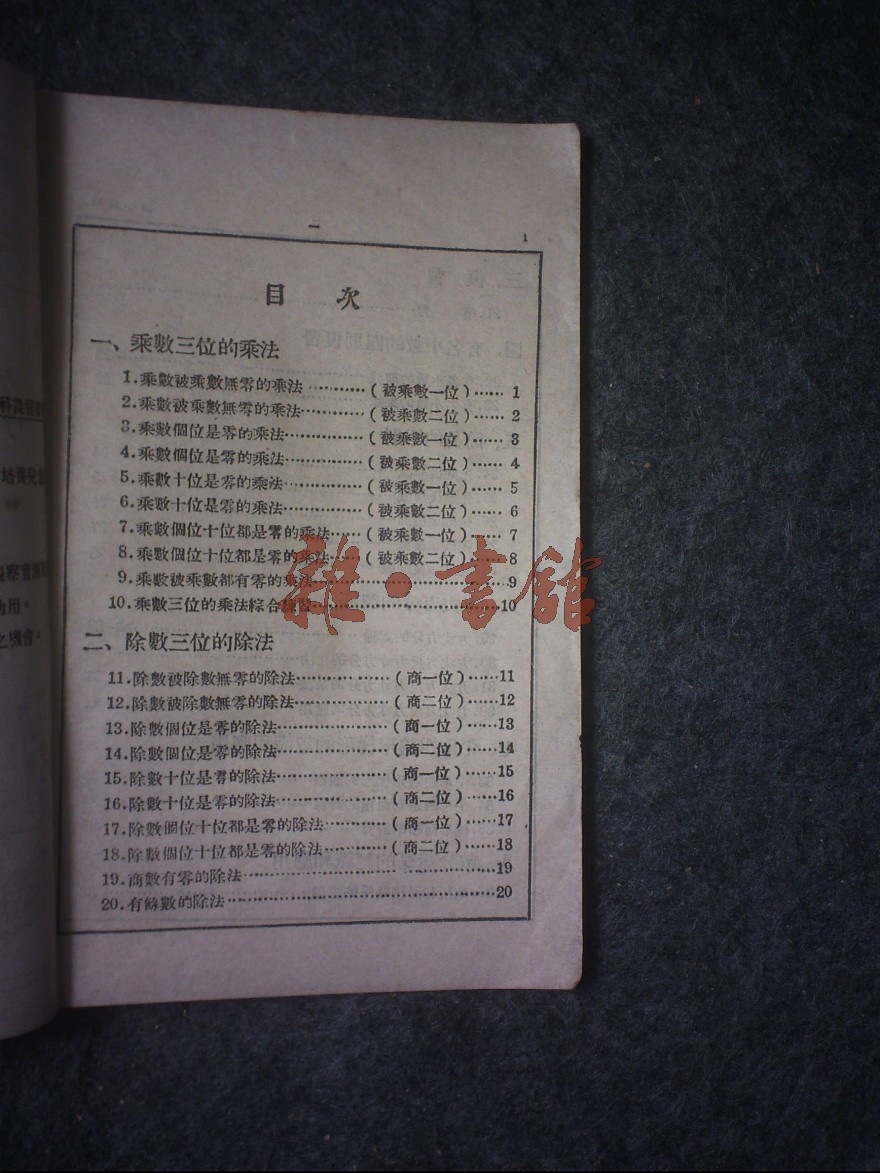 一 1
目次
一、乘數三位的乘法
1.乘數被乘數無零的乘法…………(被乘數一位)……1
2.乘數被乘數無零的乘法…………(被乘數二位)……2
3.乘數個位是零的乘法……………(被乘數一位)……3
4.乘數個位是零的乘法……………(被乘數二位)……4
5.乘數十位是零的乘法……………(被乘數一位)……5
6.乘數十位是零的乘法……………(被乘數二位)……6
7.乘數個位十位都是零的乘法……(被乘數一位)……7
8.乘數個位十位都是零的乘法……(被乘數二位)……8
9.乘數被乘數都有零的乘法………………………………9
10.乘數三位的乘法綜合練習………………………………10
二、除數三位的除法
11.除數被除數無零的除法……………(商一位)……11
12.除數被除數無零的除法……………(商二位)……12
13.除數個位是零的除法………………(商一位)……13
14.除數個位是零的除法………………(商二位)……14
15.除數十位是零的除法………………(商一位)……15
16.除數十位是零的除法………………(商二位)……16
17.除數個位十位都是零的除法………(商一位)……17
18.除數個位十位都是零的除法………(商二位)……18
19.商數有零的除法…………………………………………19
20.有餘數的除法……………………………………………20
雜·書館
培養兒
用。
之機會。